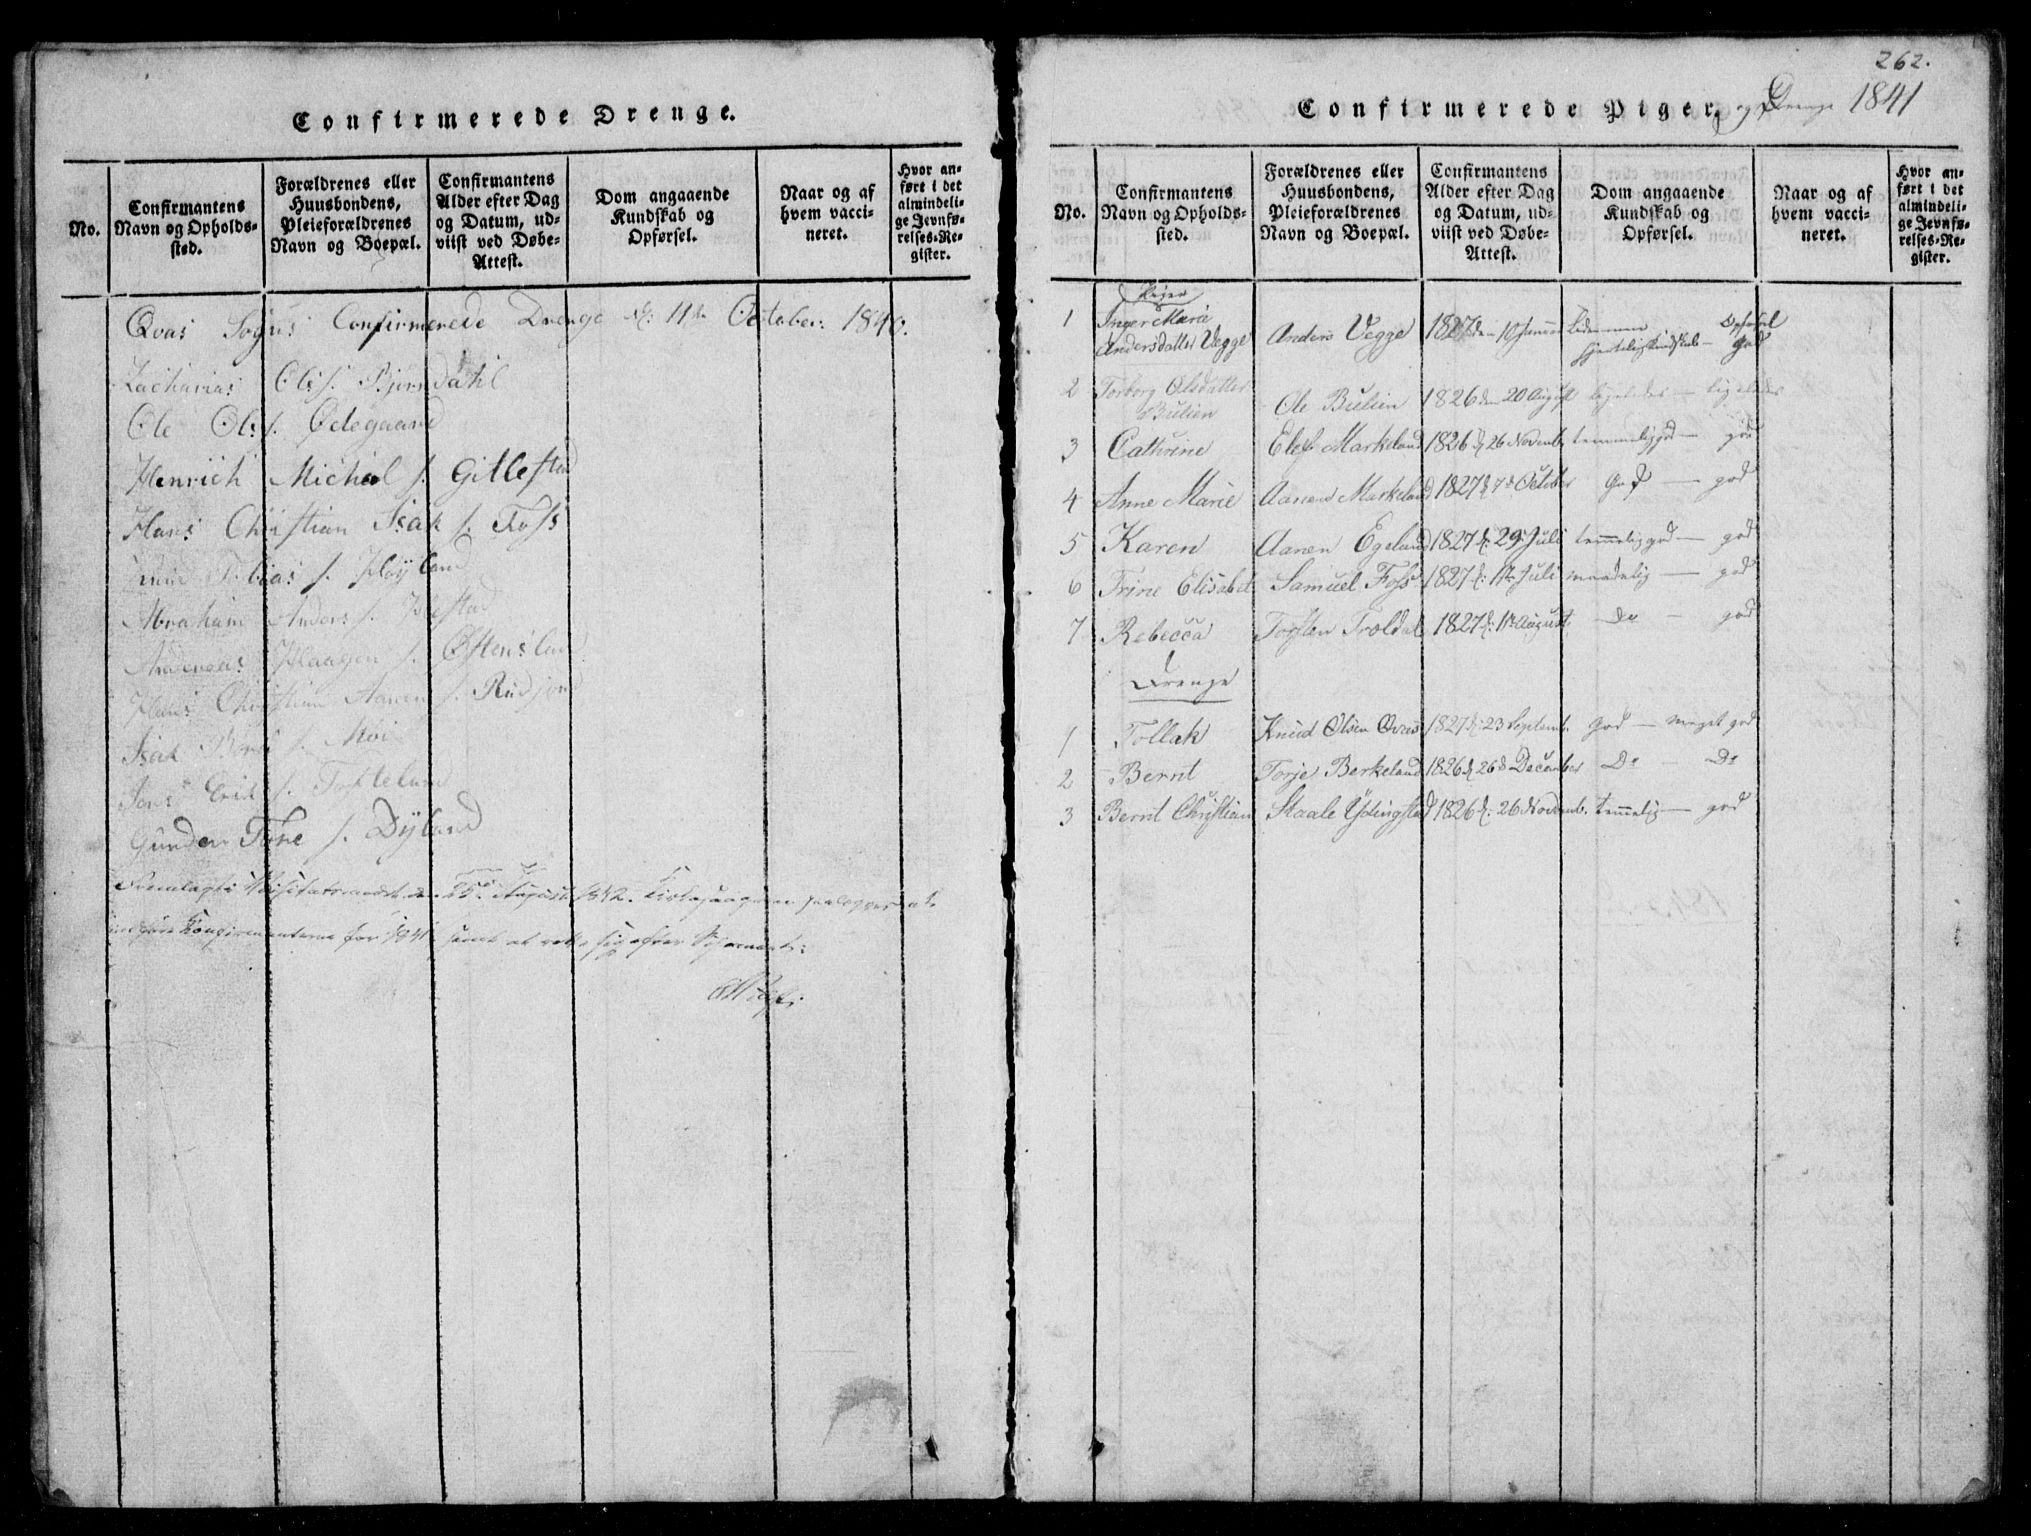 Confirmerede Drenge.
No.
Confirmantens
Navn og Opholds-
sted.
Forældrenes eller
Huusbondens,
Pleieforældrenes
Navn og Boepæl.
Confirmantens
Alder efter Dag
og Datum, ud-
viist ved Døbe-
Attest.
Dom angaaende
Kundskab og
Opførsel.
Naar og af
hvem vacci-
neret.
Hvor an-
ført i det
almindeli-
ge Jevnfø-
relses-Re-
gister.
Qvas Sogns Confirmerede Drenge d: 11te October: 1840.
Zacharias Ols. Bjørndahl
Ole Ols. Ødegaard
Henrich Michel s. Gitlestad
Hans Christian Isak s. Foss
Tobias s. Høyland
Abraham Anders s.
Andreas Haagen s. Østensland
Hans Christian Aanen s. Rudjord
Isak s. Moi
Jens Erik s.
Gunder Tore s. Dyland
Fremlagt i Visitatsmødet den 25de August 1842.
for 1841 samt at
262.
Confirmerede Piger, og Drenge 1841
No.
Confirmantens
Navn og Opholds-
sted.
Forældrenes eller
Huusbondens,
Pleieforældrenes
Navn og Boepæl.
Confirmantens
Alder efter Dag
og Datum, ud-
viist ved Døbe-
Attest.
Dom angaaende
Kundskab og
Opførsel.
Naar og af
hvem vacci-
neret.
Hvor an-
ført i det
almindeli-
ge Jevnfø-
relses-Re-
gister.
Piger
1 Inger Marie Andersdatter Vegge Anders Vegge 1827 den 10 Januar Opførsel god
2 Torborg Olsdatter Bulien Ole Bulien 1826 den 20 August ligeledes — ligeledes
3 Cathrine Elef Markeland 1826 d: 26 Novemb temmelig god — god
4 Anne Marie Aanen Markeland 1827 d: 7de October God — god
5 Karen Aanen Egeland 1827 d: 29 Juli temmelig god — god
6 Trine Elisabet Samuel Foss 1827 d: 1te Juli maadelig — god
7 Rebecca Torsten Troldal 1827 d: 11te August do — god
Drenge
1 Tollak Knud Olsen Qvas 1827 d: 23 Septemb. god — meget god
2 Bernt Torje Berkeland 1826 d: 26de December Do — Do
3 Bernt Christian Staale Ydingstad 1826 d: 26 Novemb. temmelig — god